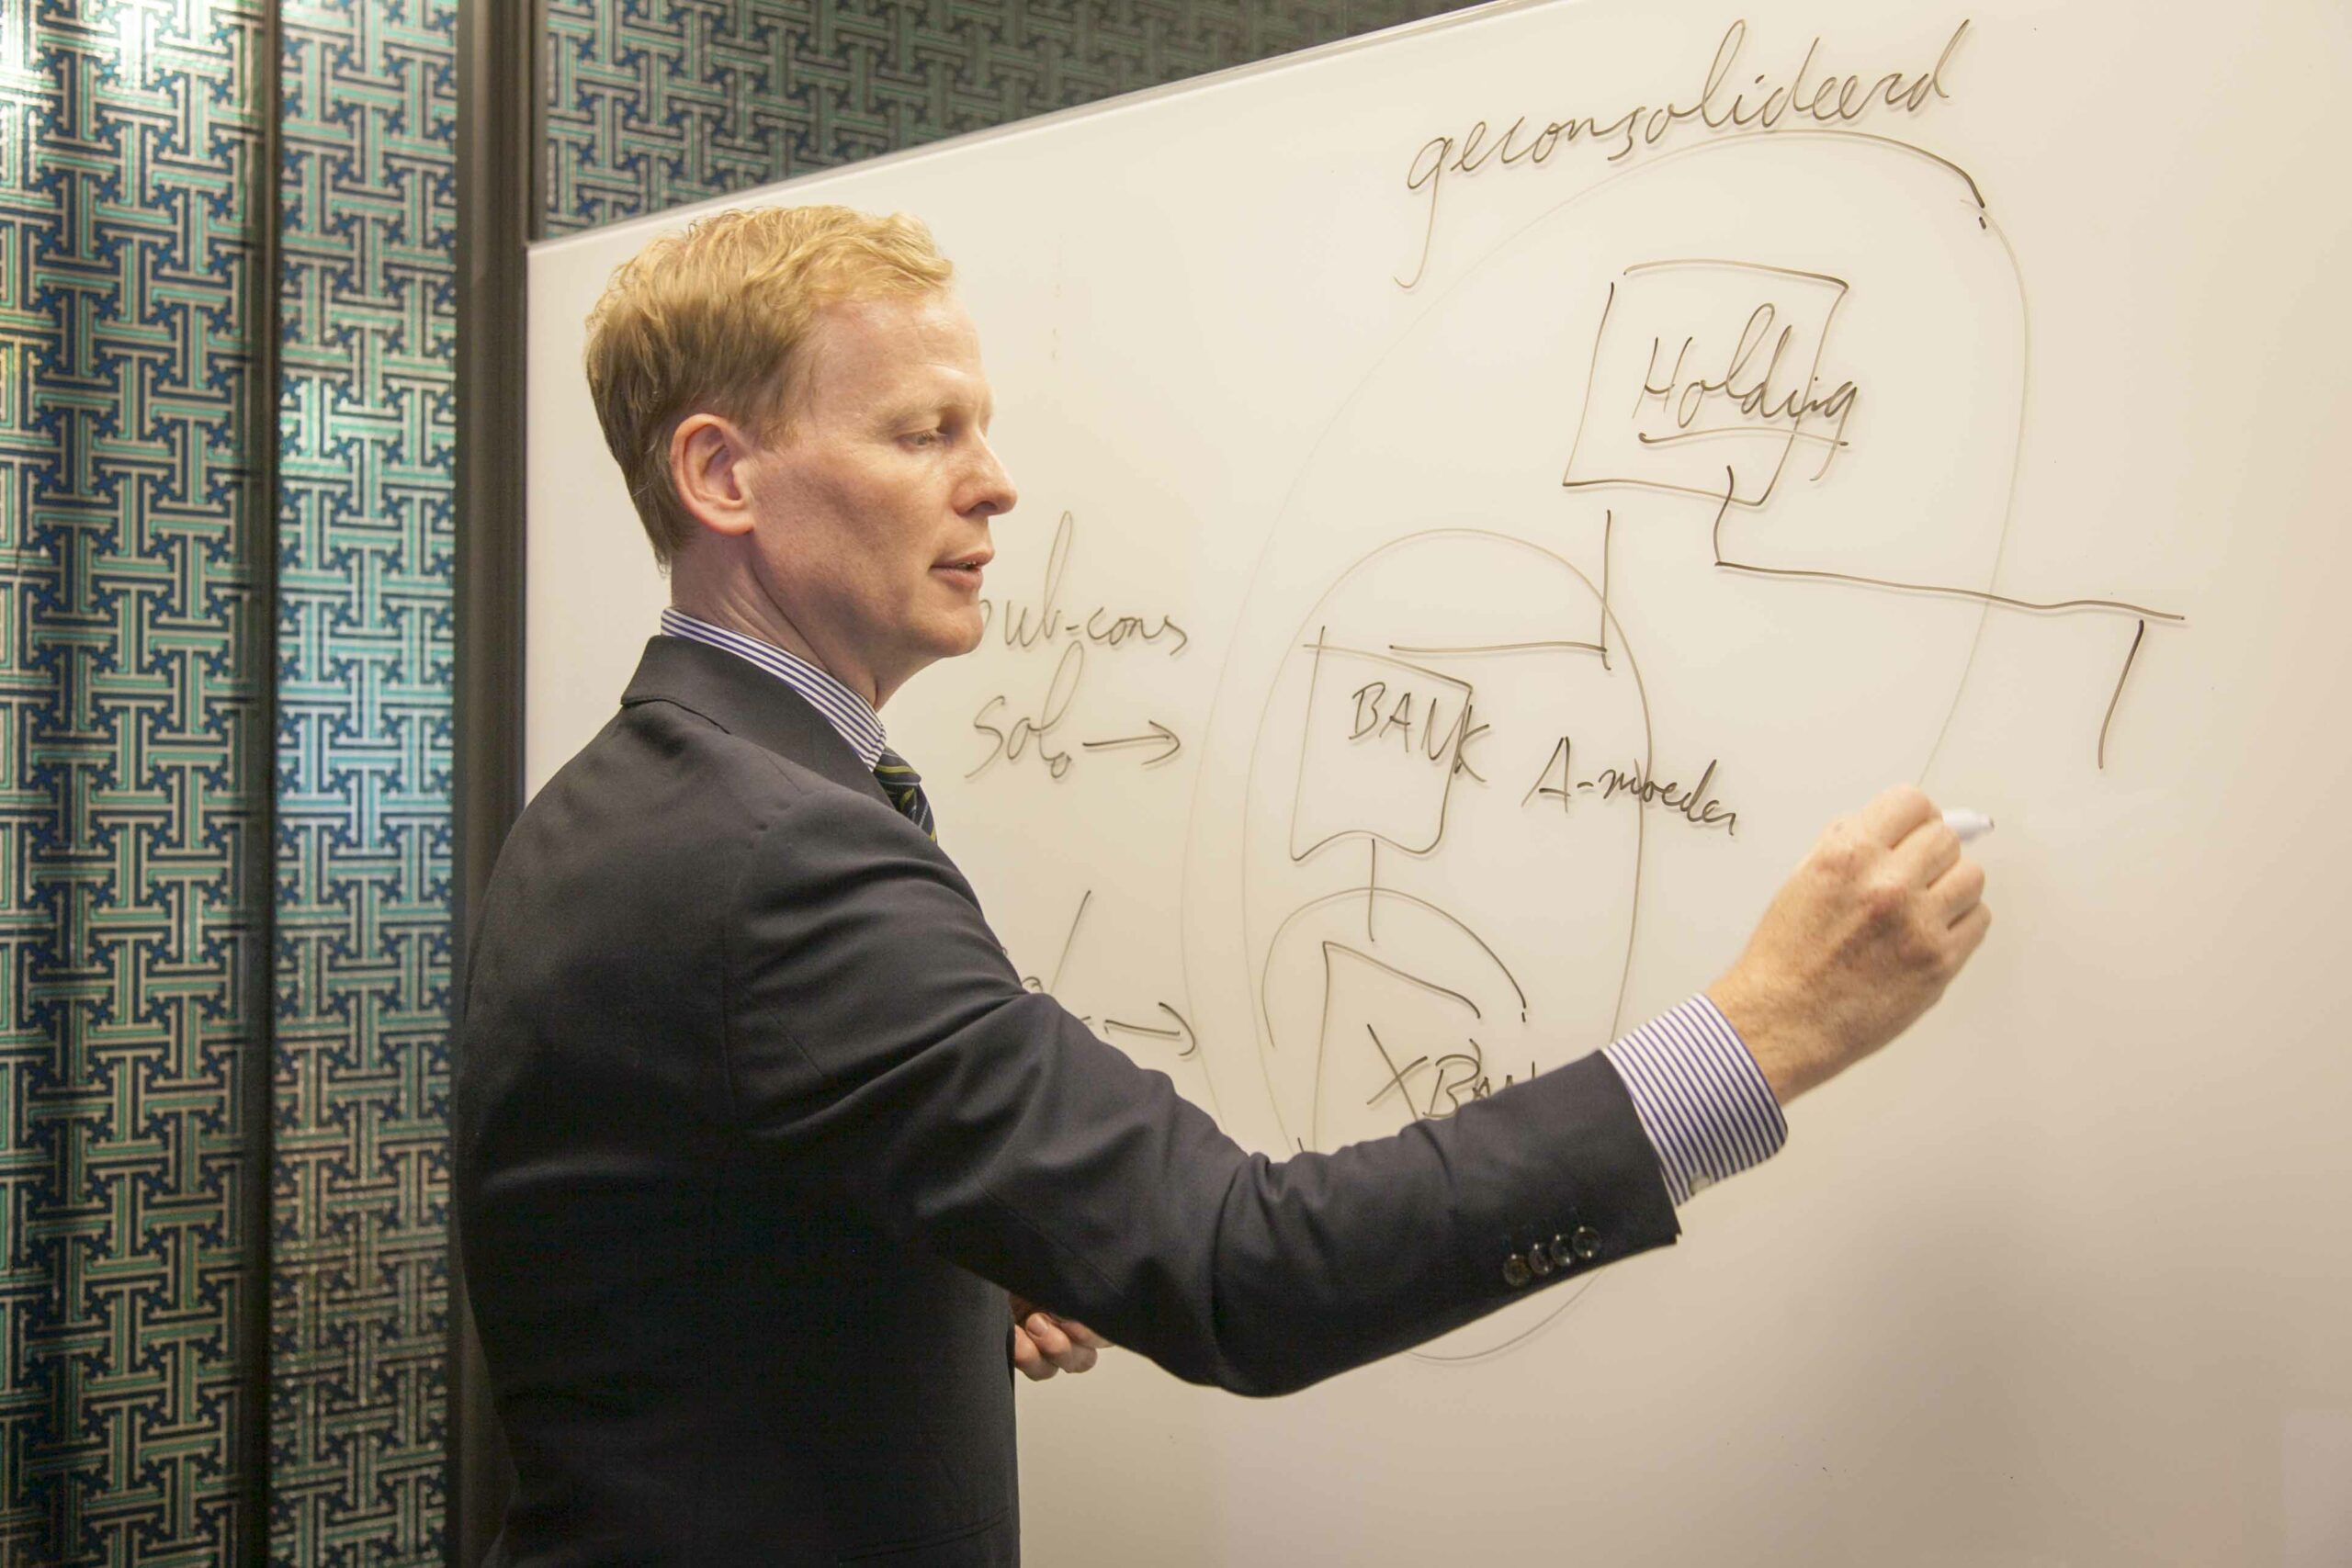 geconsolideerd
Holding
sub-cons
Solo
BANK
A-moeder
X BAN